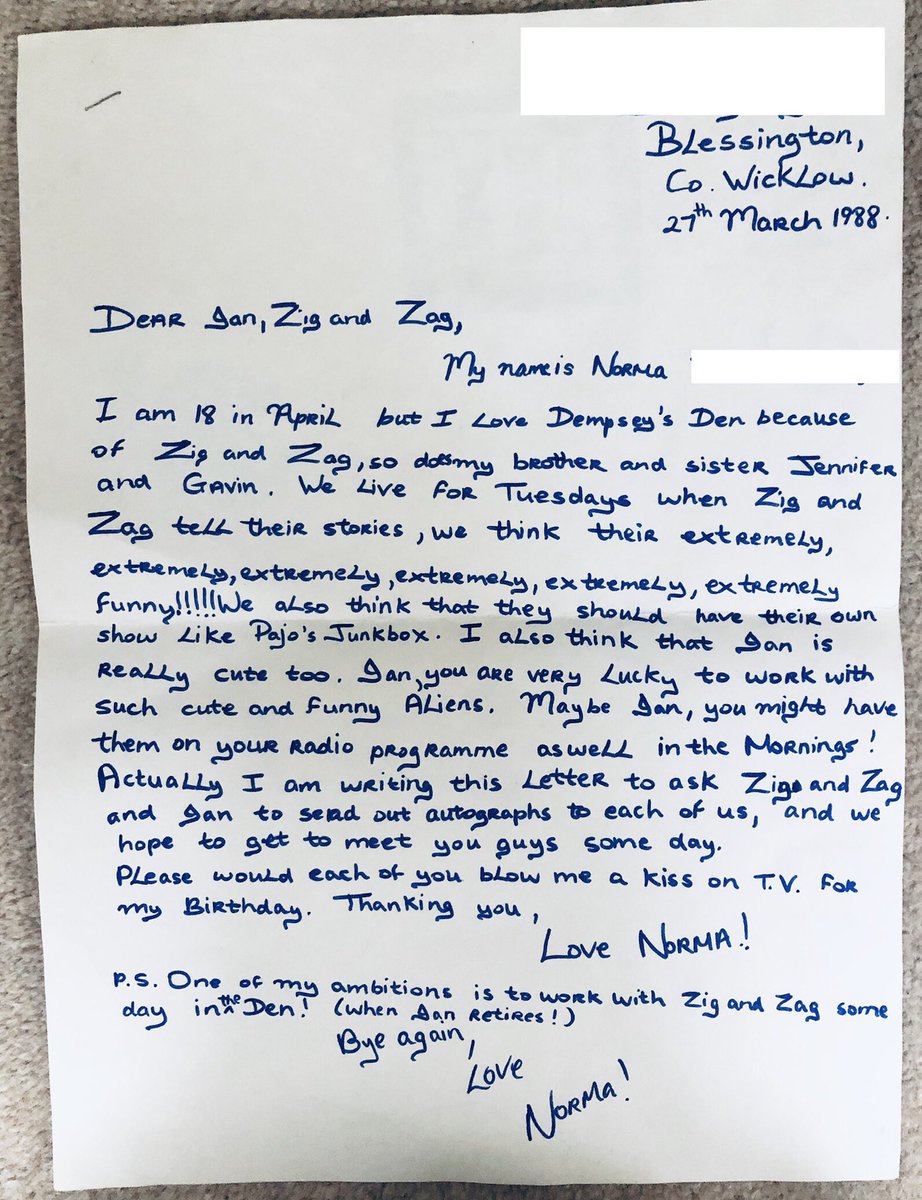 Blessington,
Co. Wicklow.
27th March 1988.
Dear Ian, Zig and Zag,
My name is Norma
I am 18 in April but I love Dempsey's Den because
of Zig and Zag, so does my brother and sister Jennifer
and Gavin. We live for Tuesdays when Zig and
Zag tell their stories, we think their extremely,
extremely, extremely, extremely, extremely, extremely
funny!!!!! We also think that they should have their own
show like Pajo's Junkbox. I also think that Ian is
really cute too. Ian, you are very lucky to work with
such cute and funny Aliens. Maybe Ian, you might have
them on your radio programme aswell in the Mornings!
Actually I am writing this letter to ask Zig and Zag
and Ian to send out autographs to each of us, and we
hope to get to meet you guys some day.
Please would each of you blow me a kiss on T.V. for
my Birthday. Thanking you,
Love Norma!
P.S. One of my ambitions is to work with Zig and Zag some
day in the Den! (when Ian retires!)
Bye again,
Love
Norma!